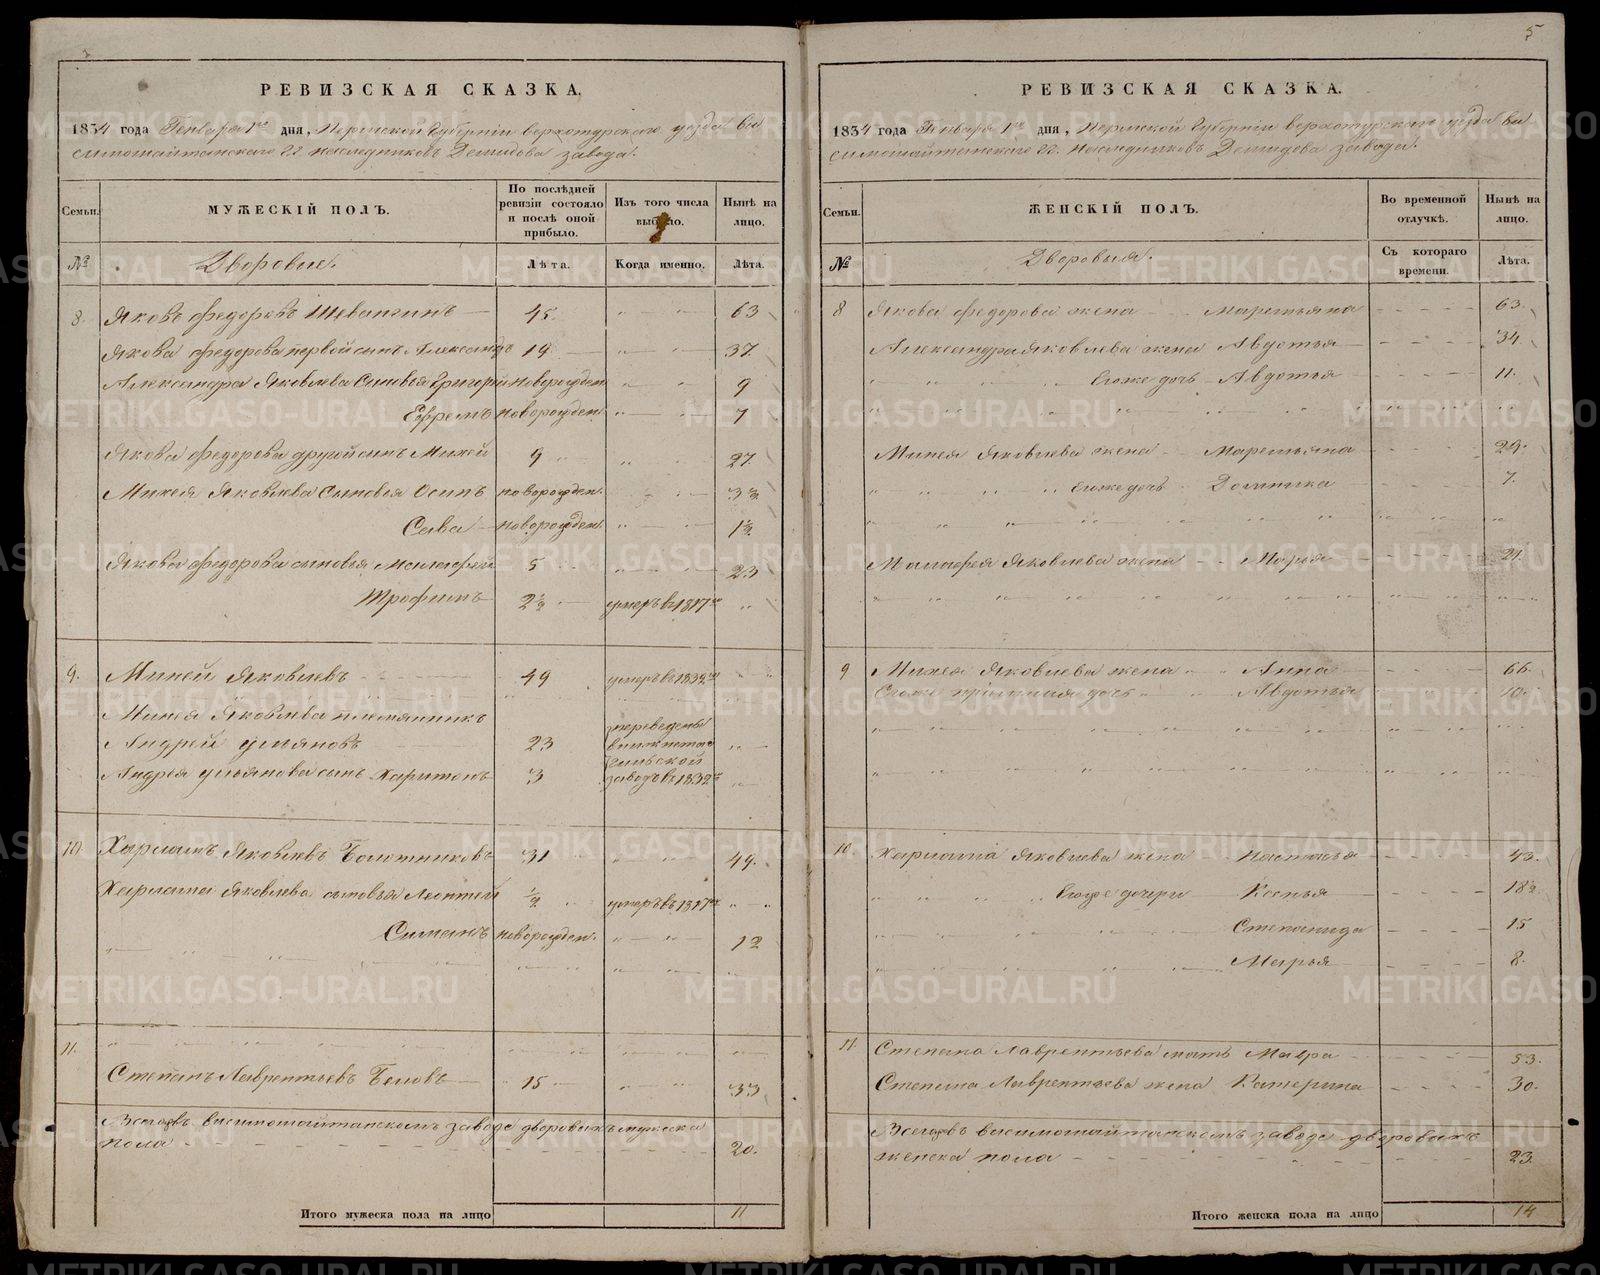 5
РЕВИЗСКАЯ СКАЗКА.
1834 года Генваря 1го дня, Пермской Губерніи верхотурскаго уезда Ви
симошайтанскаго гг наследниковъ Демидова завода.
Семьи.
МУЖЕСКІЙ ПОЛЪ.
По послѣдней ревизіи состояло и послѣ оной прибыло.
Изъ того числа выбыло.
Нынѣ на лицо.
№
Дворовые.
Лѣта.
Когда именно.
Лѣта.
8. Яковъ Федоровъ 45. 63
Якова Федорова первой сынъ Александръ 19 37.
Александра Яковлева сыновья Григорій новорожден 9
Ефремъ новорожден. 7
Якова Федорова другой сынъ Михей 9 27.
Михея Яковлева сыновья Осипъ новорожден. 3½
Сава новорожден. 1½
Якова Федорова сыновья Малафей 5 23
Трофимъ 2½ умеръ въ 1817мъ
9. Михей Яковлевъ 49 умеръ въ 1832мъ
Михея Яковлева племянникъ
Андрей Ульяновъ 23 переведены в нижнетагильской
Андрея Ульянова сынъ Харитонъ 3 заводъ въ 1832
10. Харламъ Яковлевъ Болотниковъ 31 49.
Харлама Яковлева сыновья Леонтей ½ умеръ въ 1817мъ
Симанъ новорожден. 12
11.
Степанъ Лаврентьевъ Беловъ 15 33
Всего въ висимошайтанскомъ заводе дворовыхъ мужеска
пола 20.
Итого мужеска пола на лицо 11
РЕВИЗСКАЯ СКАЗКА.
1834 года Генваря 1го дня, Пермской Губерніи верхотурскаго уезда Ви
симошайтанскаго гг. наследниковъ Демидова завода.
Семьи.
ЖЕНСКІЙ ПОЛЪ.
Во временной отлучкѣ.
Нынѣ на лицо.
№
Дворовыя.
Съ котораго времени.
Лѣта.
8 Якова Федорова жена Маремьяна 63.
Александра Яковлева жена Авдотья 34
Егоже дочь Авдотья 11.
Михея Яковлева жена Маремьяна 29.
Егоже дочь Домника 7.
Малафея Яковлева жена Марья 21.
9 Михея Яковлева жена Анна 66.
дочь Авдотья 10.
10. Харлама Яковлева жена Настасья 43.
Егоже дочери Ксенья 18½
Степанида 15
Марья 8.
11. Степана Лаврентьева мать Мавра 53.
Степана Лаврентьева жена Катерина 30.
Всего въ висимошайтанскомъ заводе дворовыхъ
женска пола 23
Итого женска пола на лицо 14
METRIKI.GASO-URAL.RU